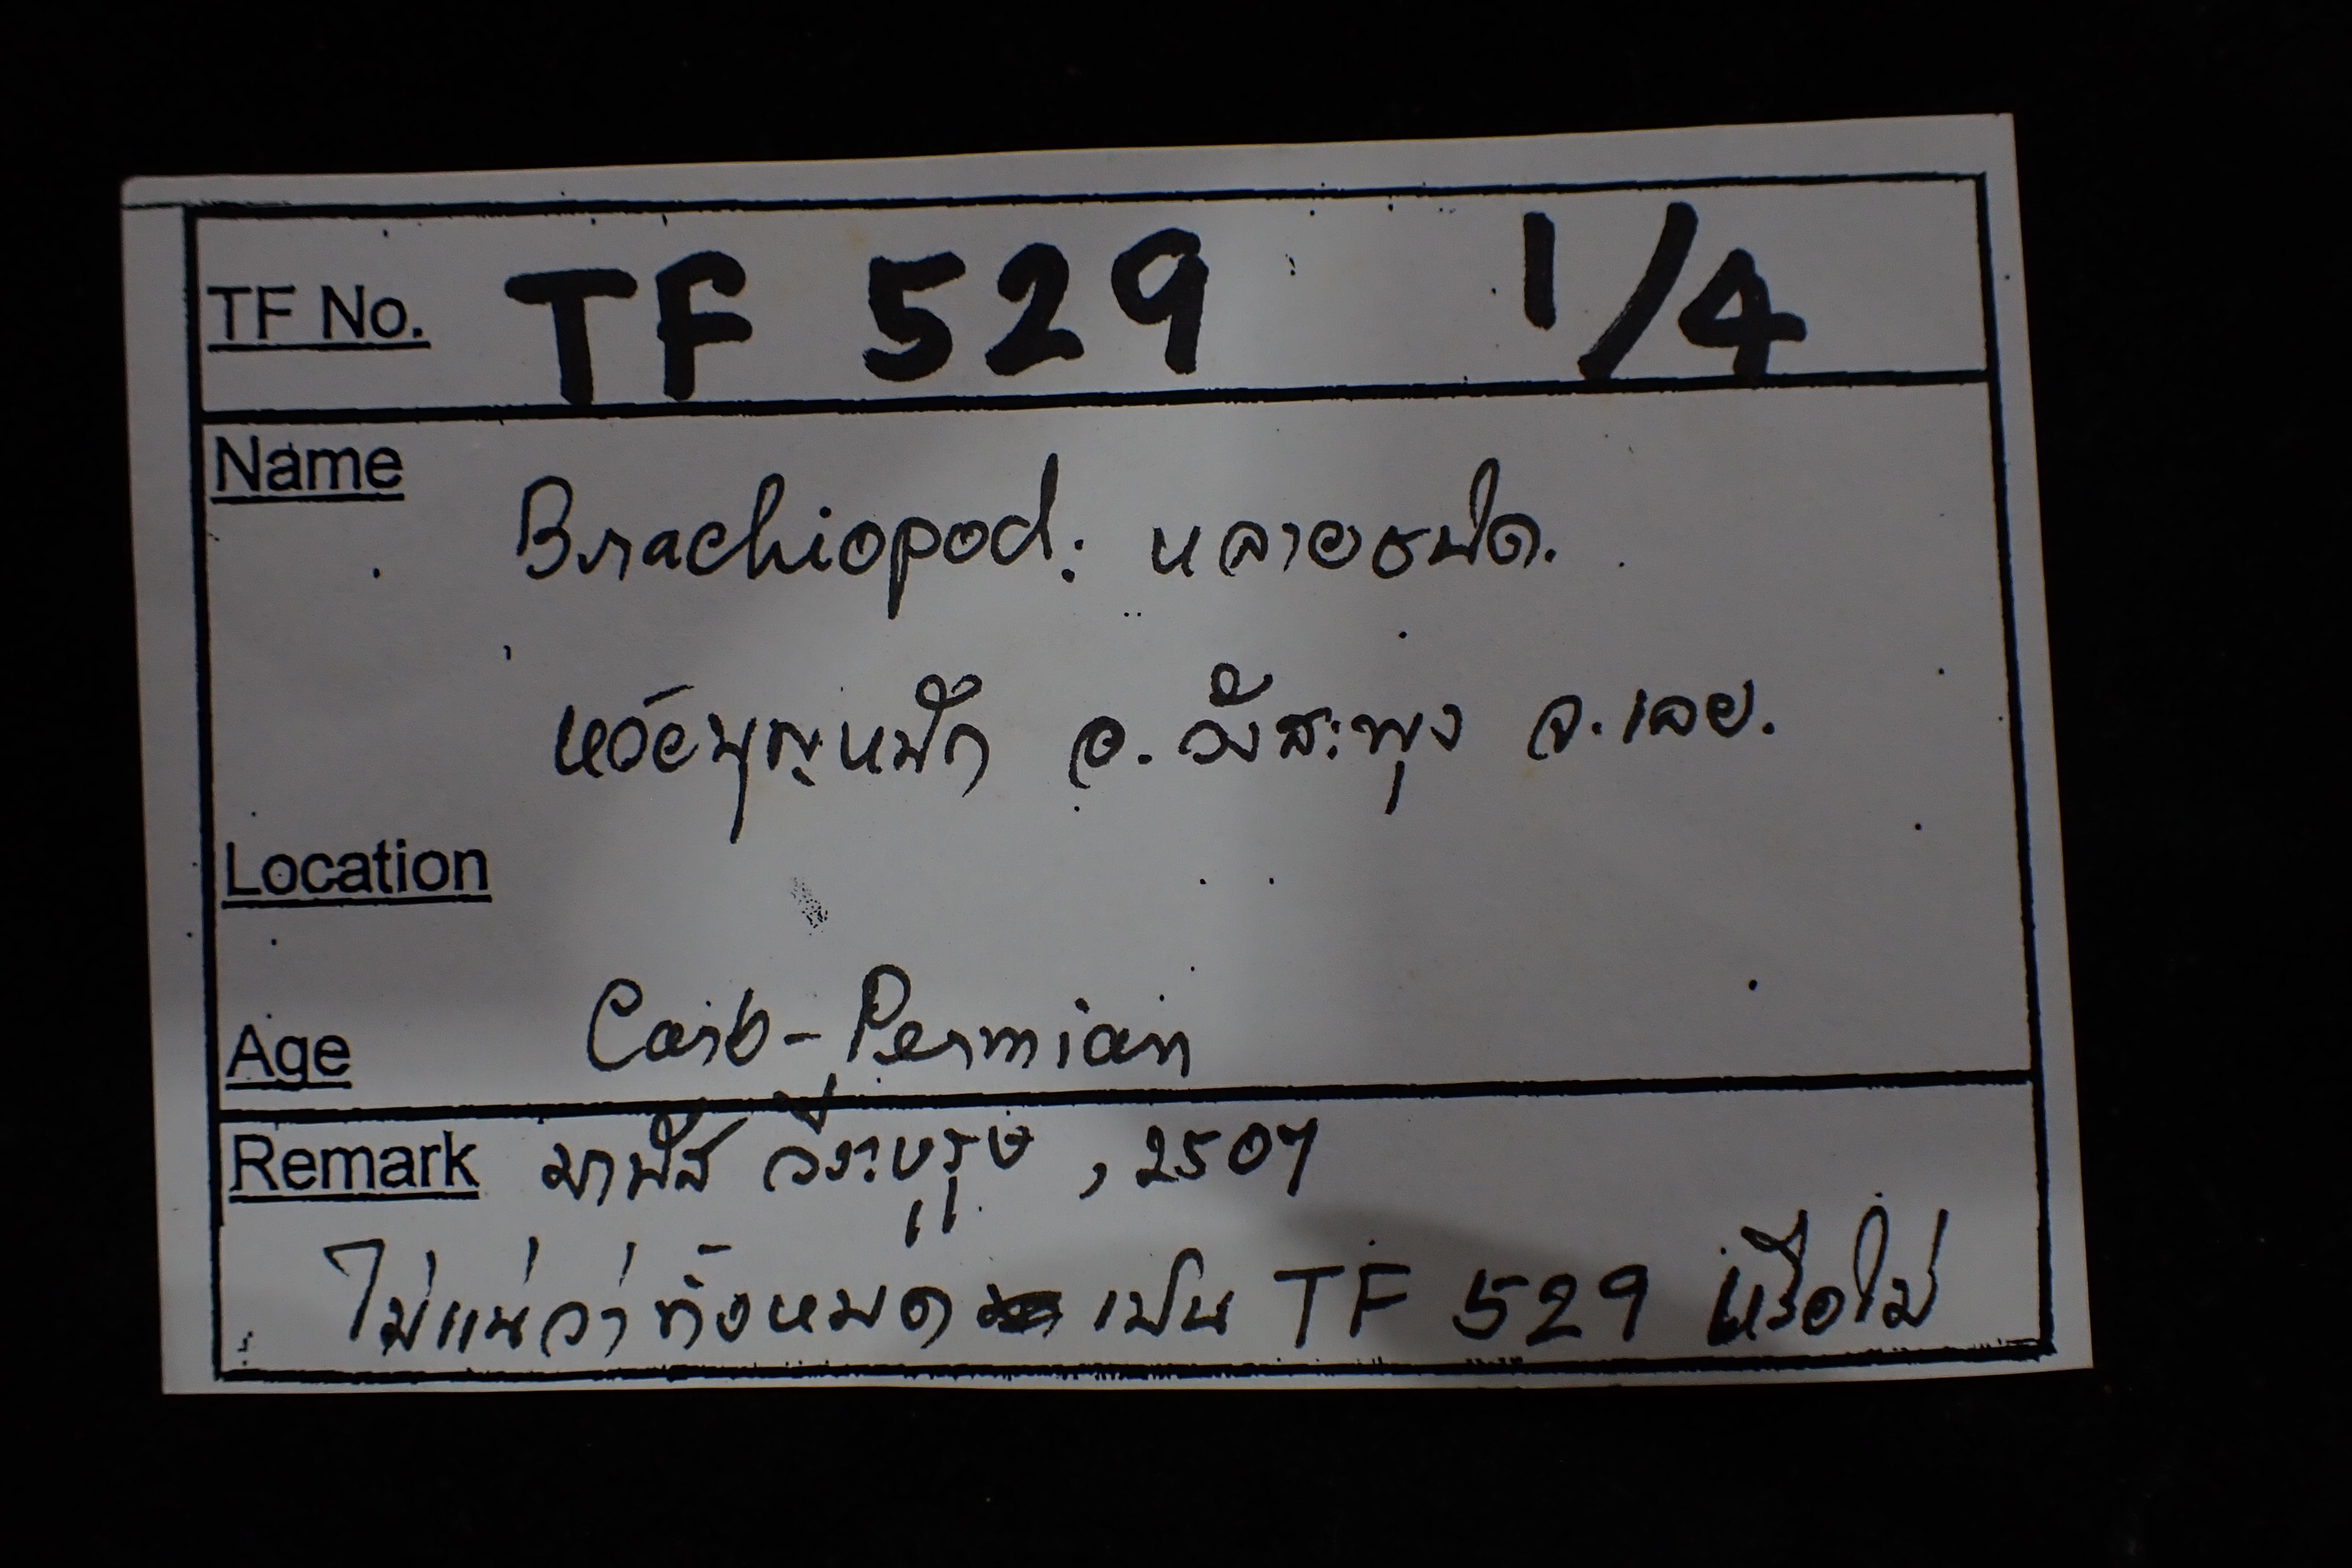 TF No. TF 529 1/4
Name
Brachiopod: หลายชนิด.
ห้วยบุญหมัก อ. วังสะพุง จ. เลย.
Location
Age Carb-Permian
Remark มานัส วีระบุรุษ , 2507
ไม่แน่ว่าทั้งหมด เป็น TF 529 หรือไม่